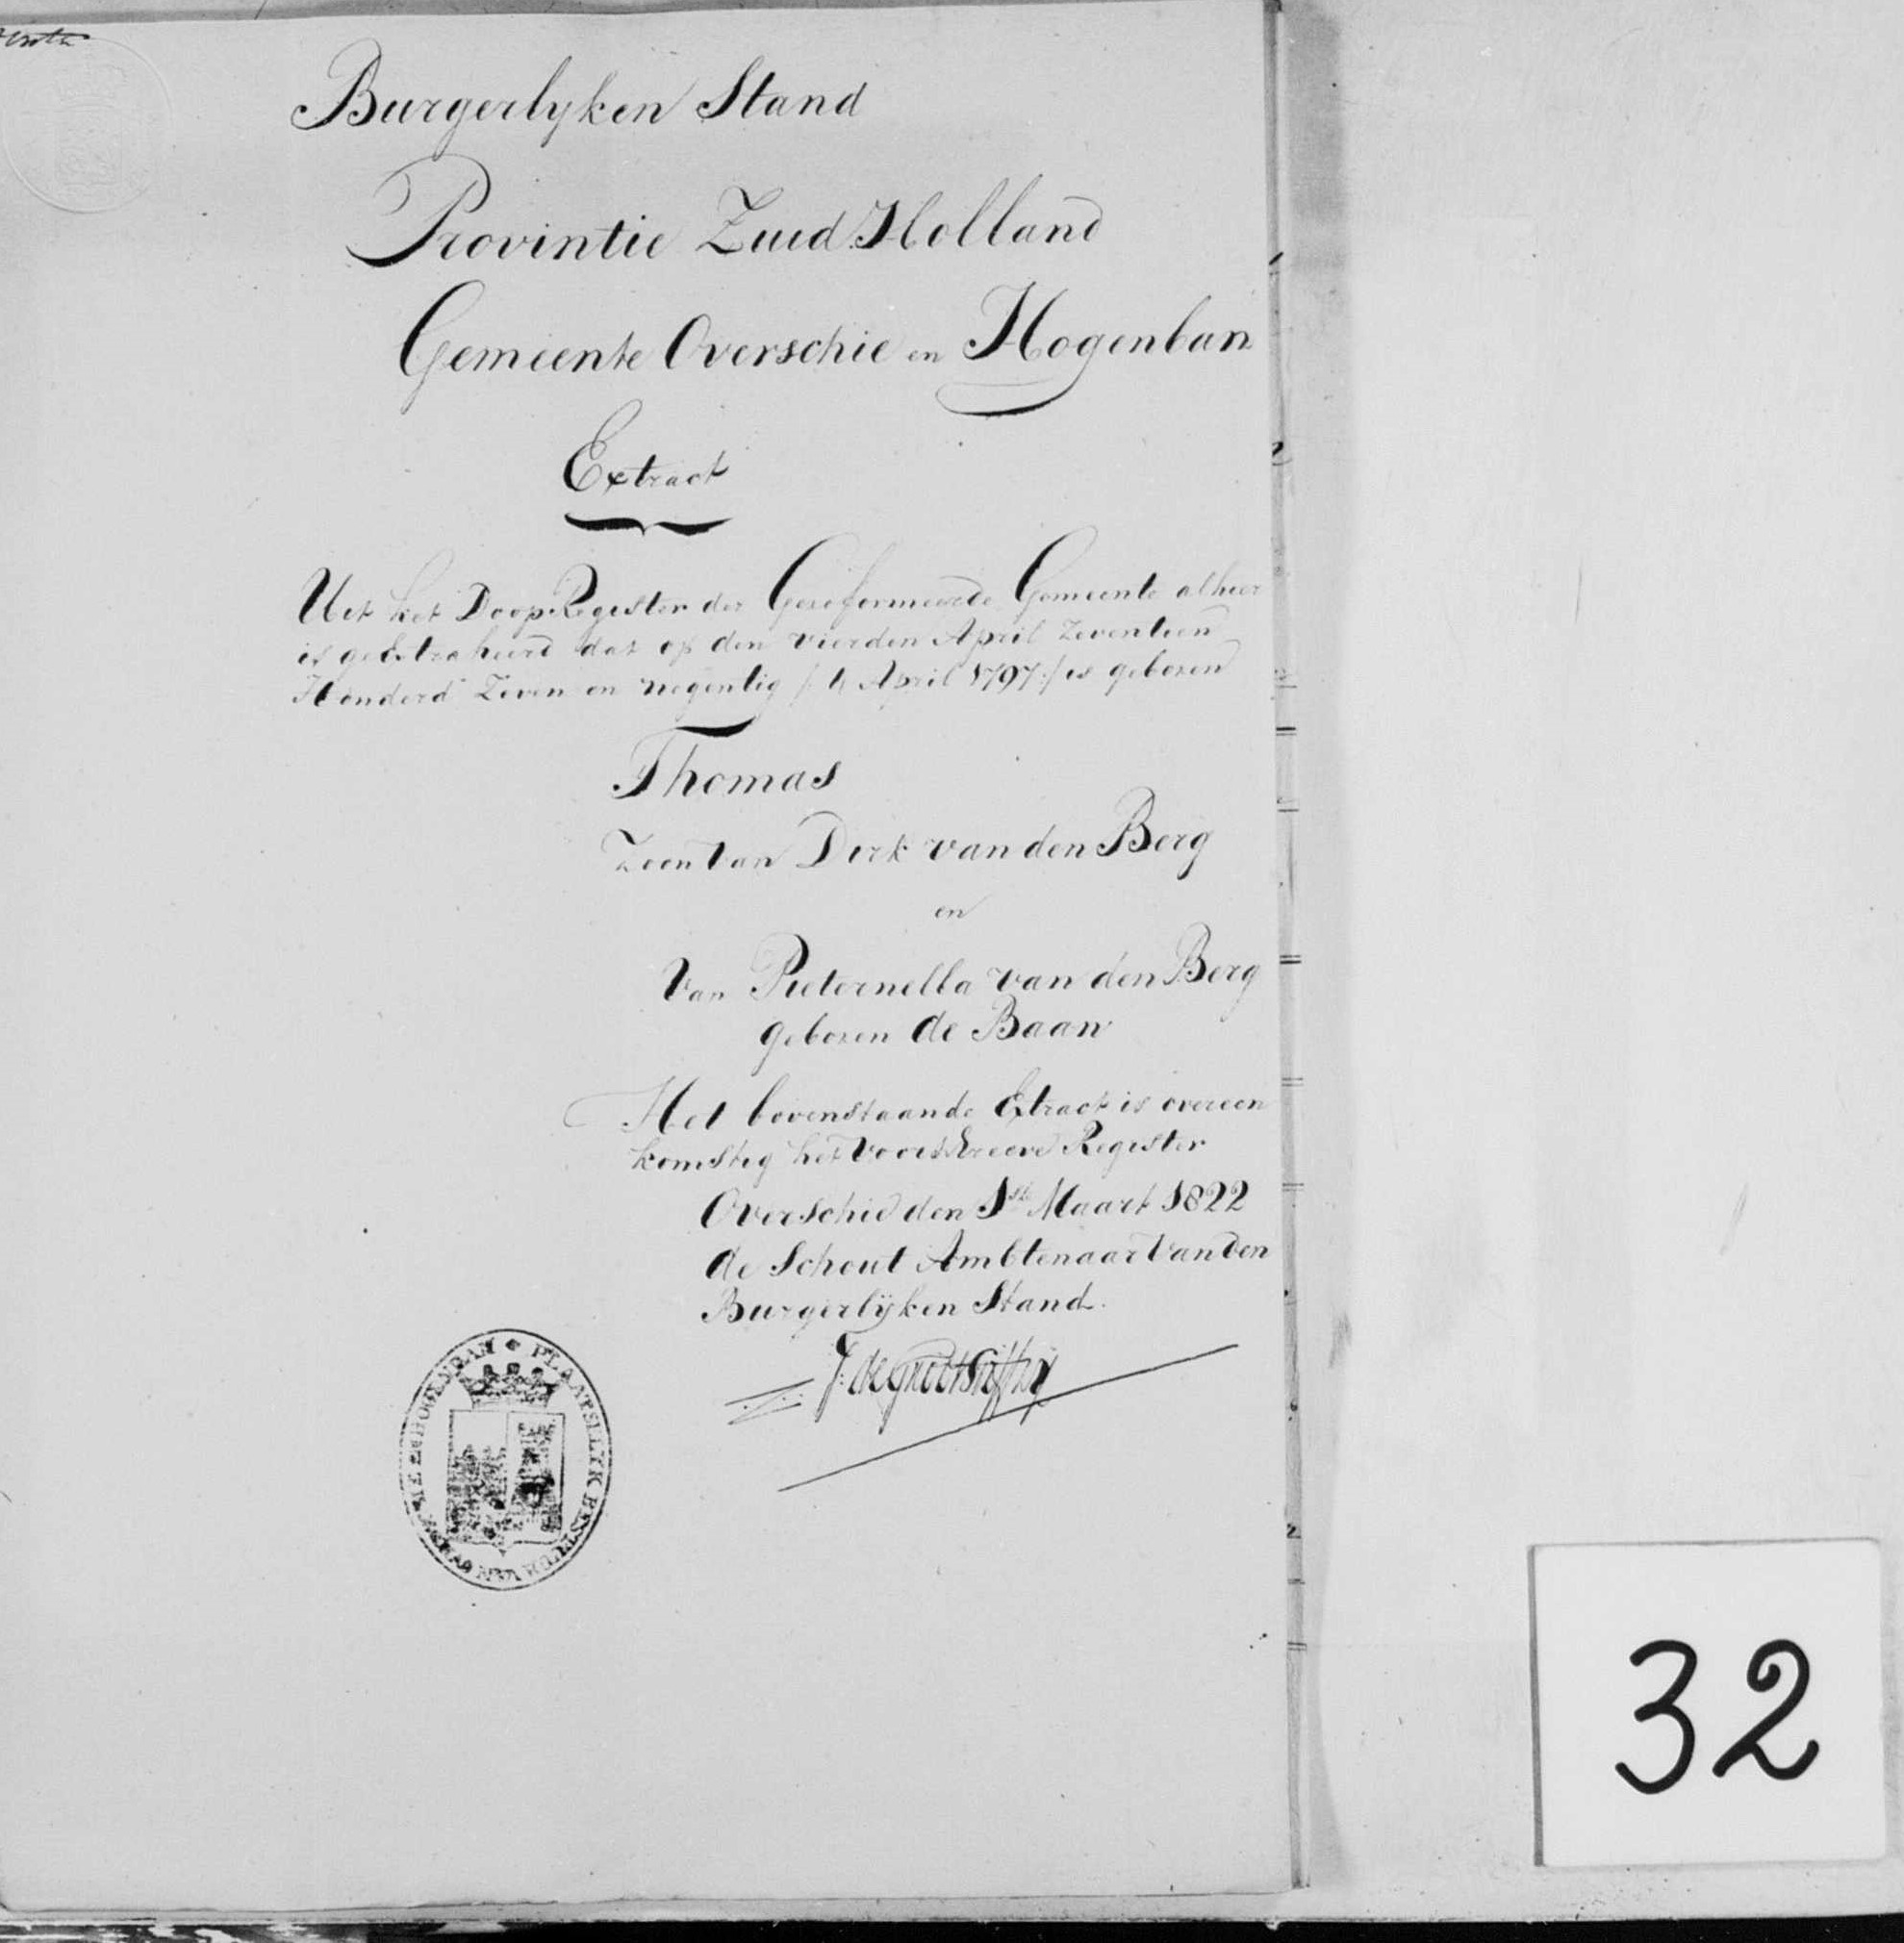 Burgerlyken Stand
Provintie Zuid Holland
Gemeente Overschie en Hogenban
Extract
Uit het Doop Register der Gereformeerde Gemeente alhier
is geextraheerd dat op den vierden April Zeventien
Honderd Zeven en negentig /: 4 April 1797 :/ is geboren
Thomas
Zoon van Dirk van den Berg
en
Van Pieternella van den Berg
geboren de Baan
Het bovenstaande Extract is overeen
komstig het voorschreeve Register
Overschie den 1ste Maart 1822
de Schout Ambtenaar van den
Burgerlijken Stand.
PLAATSELYK BESTUUR VAN
32